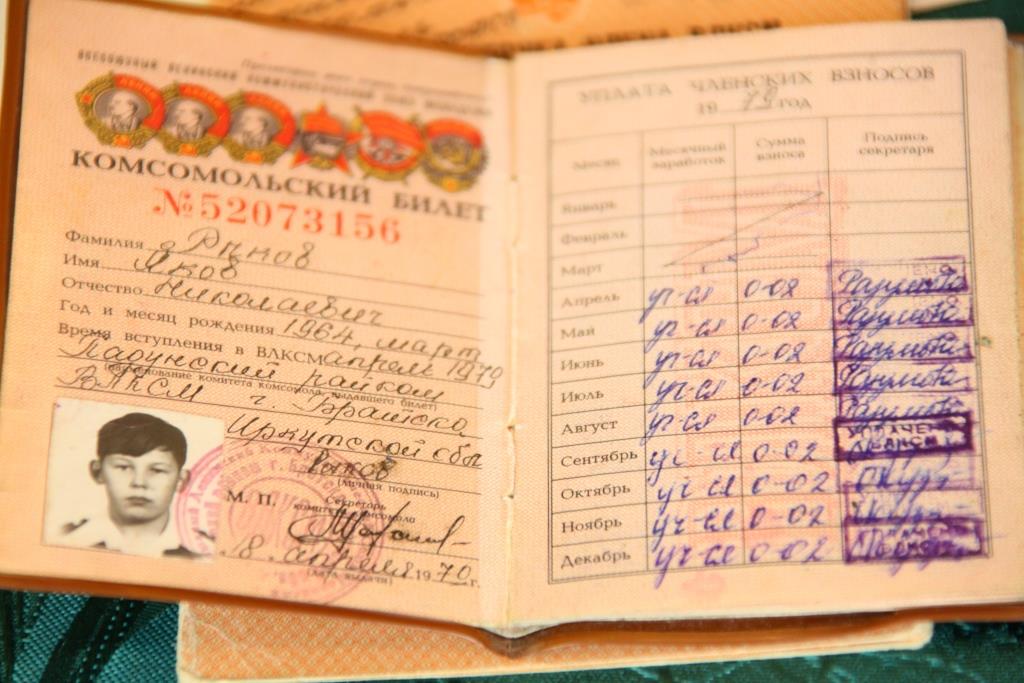 ВСЕСОЮЗНЫЙ ЛЕНИНСКИЙ КОММУНИСТИЧЕСКИЙ СОЮЗ МОЛОДЕЖИ
КОМСОМОЛЬСКИЙ БИЛЕТ
№52073156
Фамилия
Имя Яков
Отчество Николаевич
Год и месяц рождения 1964, март
Время вступления в ВЛКСМ апрель 1979
Падунский райком
(наименование комитета комсомола, выдавшего билет)
ВЛКСМ г. Братска
Иркутской обл
(личная подпись)
М. П. Секретарь
комитета комсомола
18 апреля 1979 г.
(дата выдачи)
УПЛАТА ЧЛЕНСКИХ ВЗНОСОВ
1979 год
Месяц Месячный заработок Сумма взноса Подпись секретаря
Январь
Февраль
Март
Апрель уч-ся 0-02
Май уч-ся 0-02
Июнь уч-ся 0-02
Июль уч-ся 0-02
Август уч-ся 0-02
Сентябрь уч-ся 0-02
Октябрь уч-ся 0-02
Ноябрь уч-ся 0-02
Декабрь уч-ся 0-02